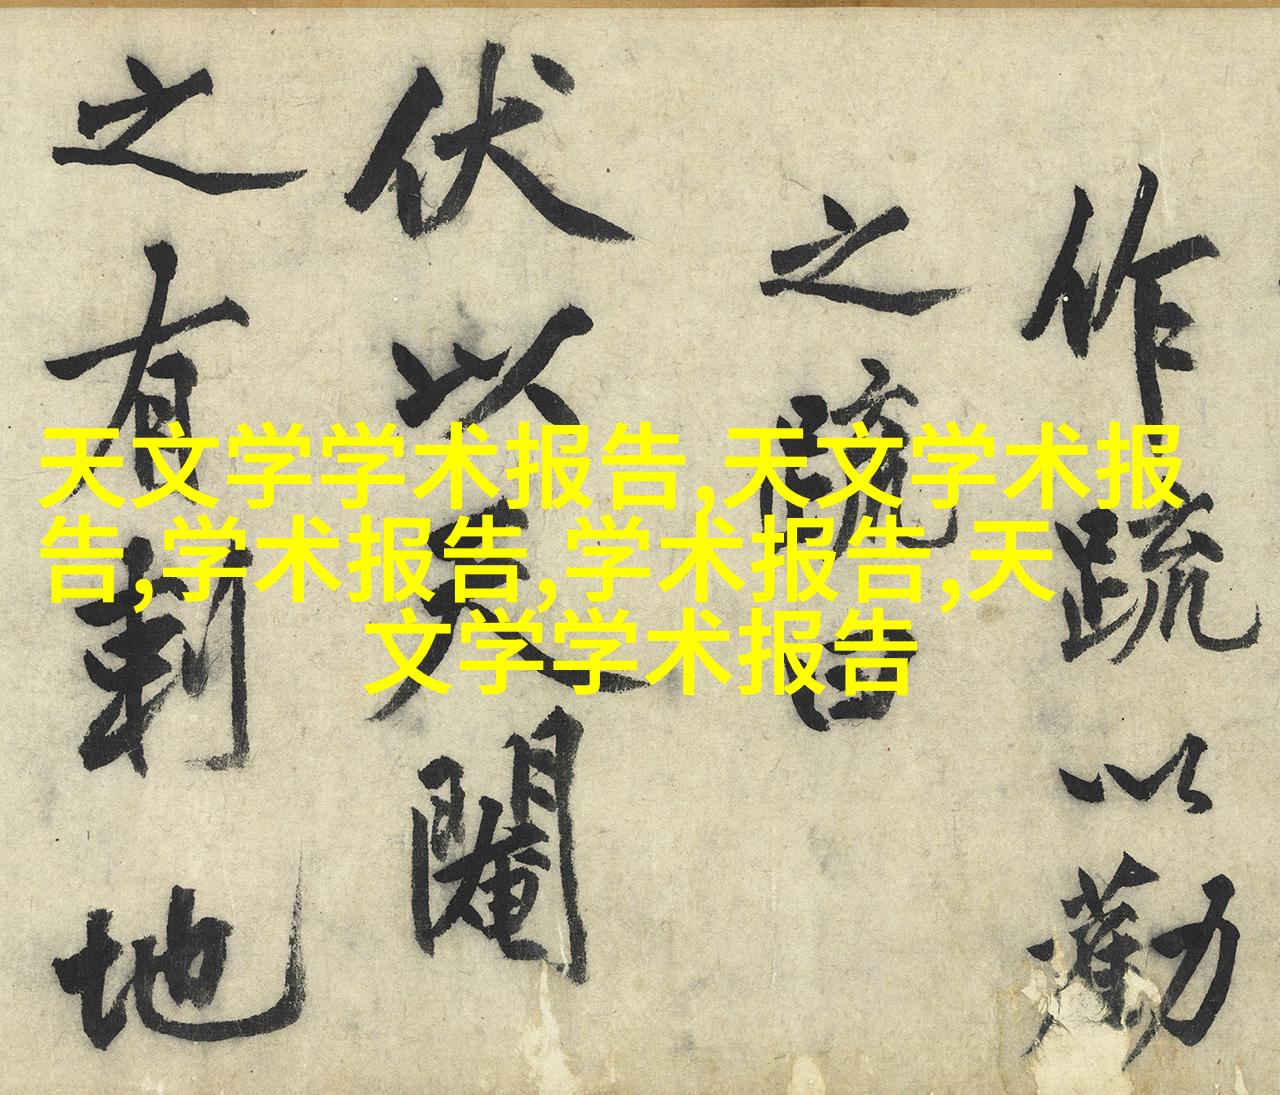 作疏以勸
之疏曰
伏以天閹
之有刺地
天文学学术报告,天文学术报
告,学术报告,学术报告,天
文学学术报告